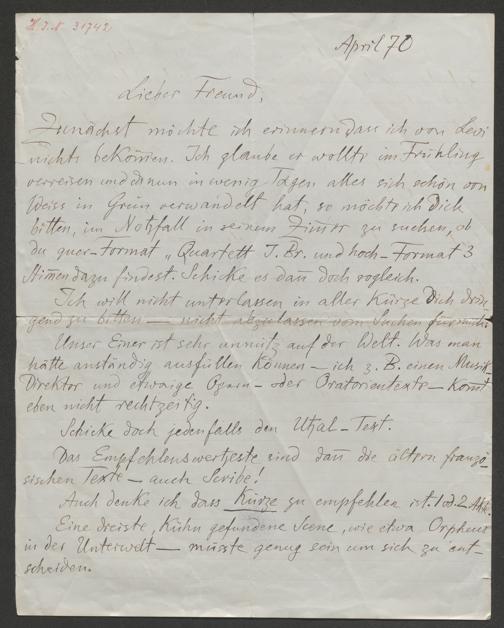 H.I.N. 31742
April 70
Lieber Freund,
Zunächst möchte ich erinnern dass ich von Levi
nichts bekom̄en. Ich glaube er wollte im Frühling
verreisen und da nun in wenig Tagen alles sich schön von
Weiss in Grün verwandelt hat, so möchte ich Dich
bitten, im Nothfall in seinem Zimer zu suchen, ob
du quer-Format „Quartett J. Br. und hoch-Format 3
Stimen dazu findest. Schicke es dan̄ doch sogleich.
Ich will nicht unterlassen in aller Kürze Dich drin
gend zu bitten — nicht abzulassen vom Suchen für mich.
Unser Einer ist sehr unnütz auf der Welt. Was man
hätte anständig ausfüllen können — ich z. B. einen Musik
Direktor und etwaige Opern- oder Oratorientexte — komt
eben nicht rechtzeitig.
Schicke doch jedenfalls den Uthal-Text.
Das Empfehlenswertheste sind dan̄ die ältern franzö
sischen Texte — auch Scribe!
Auch denke ich dass Kürze zu empfehlen ist. 1 od. 2 Akte.
Eine dreiste, kühn gefundene Scene, wie etwa Orpheus
in der Unterwelt — müsste genug sein um sich zu ent-
scheiden.